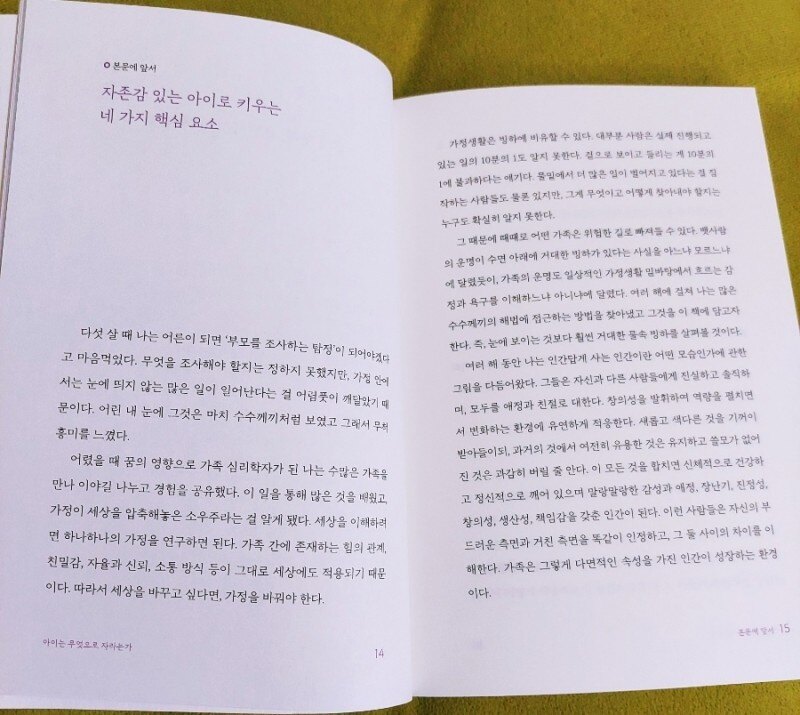 본문에 앞서
자존감 있는 아이로 키우는
네 가지 핵심 요소
다섯 살 때 나는 어른이 되면 '부모를 조사하는 탐정'이 되어야겠다
고 마음먹었다. 무엇을 조사해야 할지는 정하지 못했지만, 가정 안에
서는 눈에 띄지 않는 많은 일이 일어난다는 걸 어렴풋이 깨달았기 때
문이다. 어린 내 눈에 그것은 마치 수수께끼처럼 보였고 그래서 무척
흥미를 느꼈다.
어렸을 때 꿈의 영향으로 가족 심리학자가 된 나는 수많은 가족을
만나 이야길 나누고 경험을 공유했다. 이 일을 통해 많은 것을 배웠고,
가정이 세상을 압축해놓은 소우주라는 걸 알게 됐다. 세상을 이해하려
면 하나하나의 가정을 연구하면 된다. 가족 간에 존재하는 힘의 관계,
친밀감, 자율과 신뢰, 소통 방식 등이 그대로 세상에도 적용되기 때문
이다. 따라서 세상을 바꾸고 싶다면, 가정을 바꿔야 한다.
아이는 무엇으로 자라는가
14
가정생활은 빙하에 비유할 수 있다. 대부분 사람은 실제 진행되고
있는 일의 10분의 1도 알지 못한다. 겉으로 보이고 들리는 게 10분의
1에 불과하다는 얘기다. 물밑에서 더 많은 일이 벌어지고 있다는 걸 짐
작하는 사람들도 물론 있지만, 그게 무엇이고 어떻게 찾아내야 할지는
누구도 확실히 알지 못한다.
그 때문에 때때로 어떤 가족은 위험한 길로 빠져들 수 있다. 뱃사람
의 운명이 수면 아래에 거대한 빙하가 있다는 사실을 아느냐 모르느냐
에 달렸듯이, 가족의 운명도 일상적인 가정생활 밑바탕에서 흐르는 감
정과 욕구를 이해하느냐 아니냐에 달렸다. 여러 해에 걸쳐 나는 많은
수수께끼의 해법에 접근하는 방법을 찾아냈고 그것을 이 책에 담고자
한다. 즉, 눈에 보이는 것보다 훨씬 거대한 물속 빙하를 살펴볼 것이다.
여러 해 동안 나는 인간답게 사는 인간이란 어떤 모습인가에 관한
그림을 다듬어왔다. 그들은 자신과 다른 사람들에게 진실하고 솔직하
며, 모두를 애정과 친절로 대한다. 창의성을 발휘하여 역량을 펼치면
서 변화하는 환경에 유연하게 적응한다. 새롭고 색다른 것을 기꺼이
받아들이되, 과거의 것에서 여전히 유용한 것은 유지하고 쓸모가 없어
진 것은 과감히 버릴 줄 안다. 이 모든 것을 합치면 신체적으로 건강하
고 정신적으로 깨어 있으며 말랑말랑한 감성과 애정, 장난기, 진정성,
창의성, 생산성, 책임감을 갖춘 인간이 된다. 이런 사람들은 자신의 부
드러운 측면과 거친 측면을 똑같이 인정하고, 그 둘 사이의 차이를 이
해한다. 가족은 그렇게 다면적인 속성을 가진 인간이 성장하는 환경
이다.
본문에 앞서 15